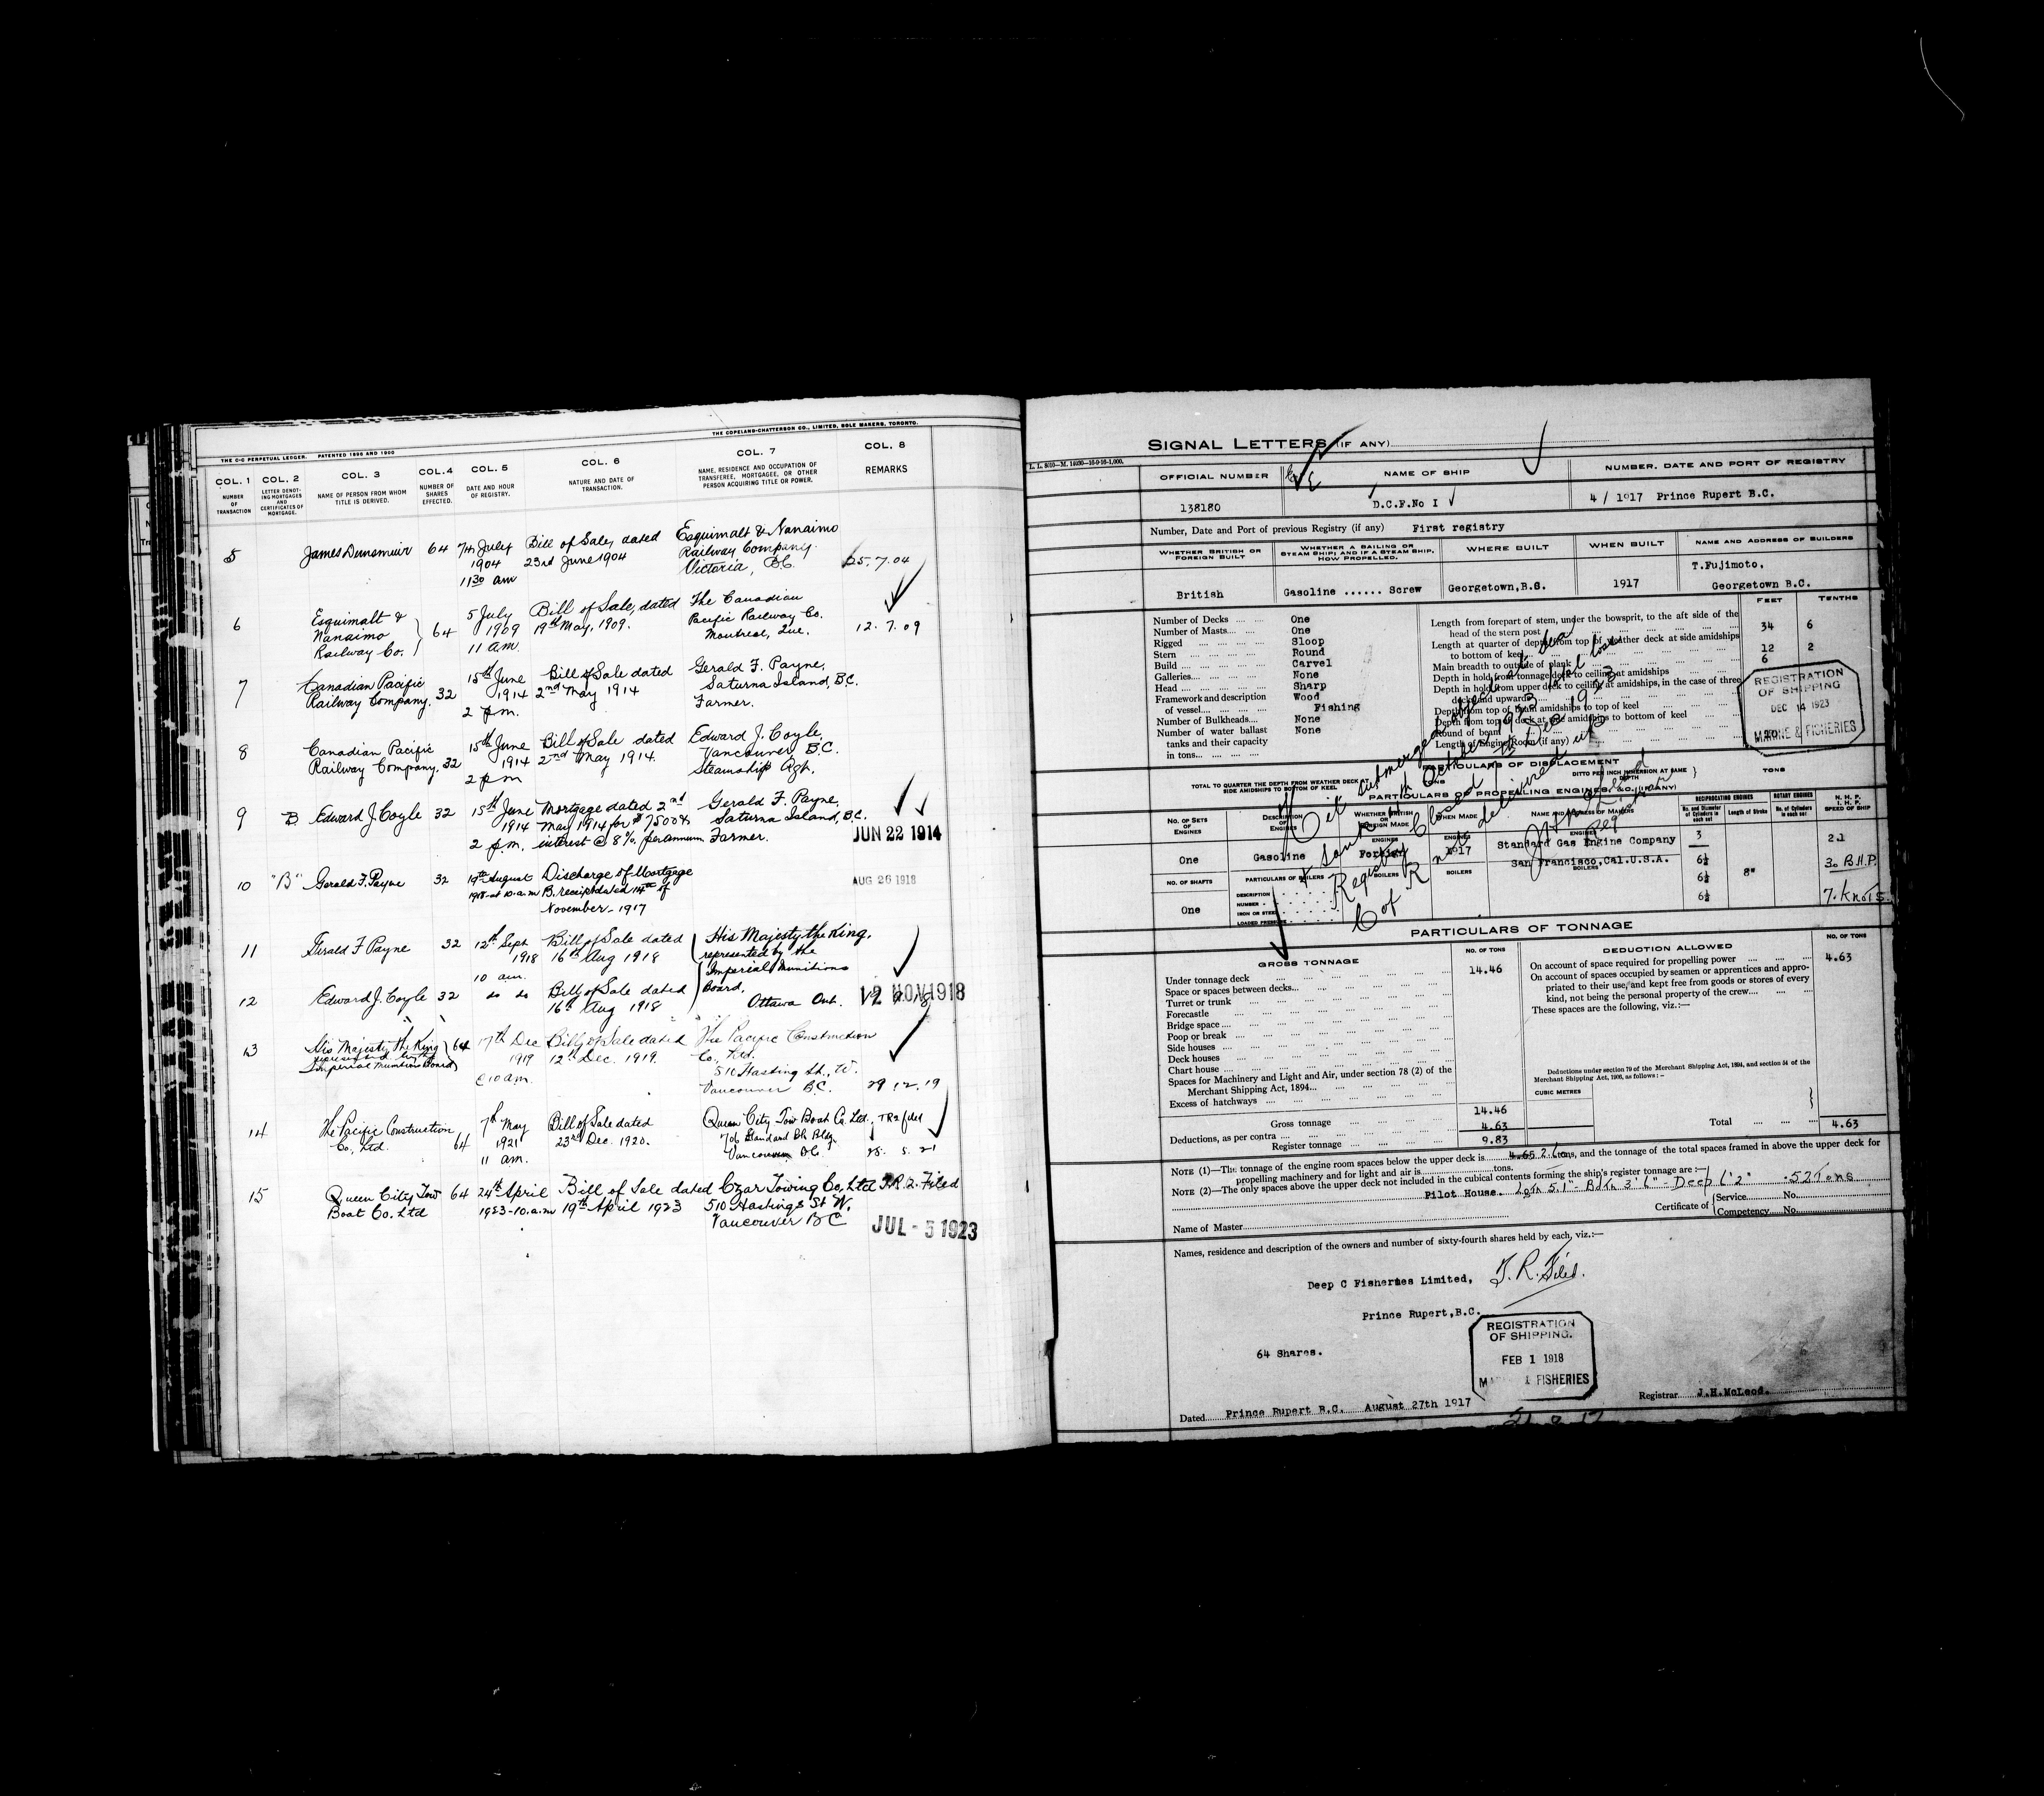 THE C-C PERPETUAL LEDGER. PATENTED 1896 AND 1900
THE COPELAND-CHATTERSON CO., LIMITED, SOLE MAKERS, TORONTO.
COL. 1 COL. 2 COL. 3 COL. 4 COL. 5 COL. 6 COL. 7 COL. 8
NUMBER OF TRANSACTION
LETTER DENOTING MORTGAGES AND CERTIFICATES OF MORTGAGE.
NAME OF PERSON FROM WHOM TITLE IS DERIVED.
NUMBER OF SHARES EFFECTED.
DATE AND HOUR OF REGISTRY.
NATURE AND DATE OF TRANSACTION.
NAME, RESIDENCE AND OCCUPATION OF TRANSFEREE, MORTGAGEE, OR OTHER PERSON ACQUIRING TITLE OR POWER.
REMARKS
5 James Dunsmuir 64 7th July Bill of Sale, dated Esquimalt & Nanaimo
1904 23rd June 1904 Railway Company.
11 30 am Victoria, B.C. 25.7.04
6 Esquimalt & 5 July Bill of Sale, dated The Canadian
Nanaimo 64 1909 19th May, 1909. Pacific Railway Co.
Railway Co. 11 am Montreal, Que. 12.7.09
7 Canadian Pacific 15th June Bill of Sale dated Gerald F. Payne,
Railway Company. 32 1914 2nd May 1914 Saturna Island, B.C.
2 p.m. Farmer.
8 Canadian Pacific 15th June Bill of Sale dated Edward J. Coyle,
Railway Company. 32 1914 2nd May 1914. Vancouver B.C.
2 pm Steamship Agt.
9 B. Edward J. Coyle 32 15th June Mortgage dated 2nd Gerald F. Payne,
1914 May 1914 for $7500 & Saturna Island, B.C.
2 p.m. interest @ 8% per annum Farmer. JUN 22 1914
10 "B" Gerald F. Payne 32 19th August Discharge of Mortgage AUG 26 1918
1918 at 10 a.m B. receipt dated 14th of
November - 1917
11 Gerald F Payne 32 12th Sept Bill of Sale dated His Majesty the King,
1918 16th Aug 1918 represented by the
10 am. Imperial Munitions
12 Edward J. Coyle 32 do do Bill of Sale dated Board,
16th Aug 1918 Ottawa Ont. 12 NOV 1918
13 His Majesty the King 64 17th Dec Bill of Sale dated The Pacific Construction
represented by the 1919 12th Dec. 1919. Co., Ltd.
Imperial Munitions Board @ 10 am. 510 Hasting St., W.
Vancouver B.C. 29.12.19
14 The Pacific Construction 7th May Bill of Sale dated Queen City Tow Boat Co. Ltd., TR2 filed
Co., Ltd. 64 1921 23rd Dec. 1920. 706 Standard Bk Bldg.
11 am. Vancouver B.C. 25. 5. 21
15 Queen City Tow 64 24th April Bill of Sale dated Czar Towing Co, Ltd T.R.2. Filed
Boat Co. Ltd 1923-10.a.m 19th April 1923 510 Hastings St W.
Vancouver B C JUL - 5 1923
SIGNAL LETTERS (IF ANY)
OFFICIAL NUMBER NAME OF SHIP NUMBER, DATE AND PORT OF REGISTRY
138180 D.C.F.No I 4 / 1917 Prince Rupert B.C.
Number, Date and Port of previous Registry (if any) First registry
WHETHER BRITISH OR FOREIGN BUILT
WHETHER A SAILING OR STEAM SHIP; AND IF A STEAM SHIP, HOW PROPELLED.
WHERE BUILT
WHEN BUILT
NAME AND ADDRESS OF BUILDERS
T.Fujimoto,
British Gasoline ...... Screw Georgetown,B.C. 1917 Georgetown B.C.
FEET TENTHS
Number of Decks One
Number of Masts One
Rigged Sloop
Stern Round
Build Carvel
Galleries None
Head Sharp
Framework and description Wood
of vessel Fishing
Number of Bulkheads None
Number of water ballast None
tanks and their capacity
in tons
Length from forepart of stem, under the bowsprit, to the aft side of the
head of the stern post 34 6
Length at quarter of depth from top of weather deck at side amidships
to bottom of keel
Main breadth to outside of plank 12 2
Depth in hold from tonnage deck to ceiling at amidships 6
Depth in hold from upper deck to ceiling at amidships, in the case of three
decks and upwards
Depth from top of beam amidships to top of keel
Depth from top of deck at side amidships to bottom of keel
Round of beam
Length of Engine Room (if any)
REGISTRATION
OF SHIPPING
DEC 14 1923
MARINE & FISHERIES
Hit submerged object at sea
& sank in October 1923 total loss
Registry Closed Dec 1923
C of R not delivered up
Registrar
PARTICULARS OF DISPLACEMENT
TOTAL TO QUARTER THE DEPTH FROM WEATHER DECK AT SIDE AMIDSHIPS TO BOTTOM OF KEEL TONS
DITTO PER INCH IMMERSION AT SAME DEPTH TONS
PARTICULARS OF PROPELLING ENGINES, &C. (IF ANY)
NO. OF SETS OF ENGINES
DESCRIPTION OF ENGINES
WHETHER BRITISH OR FOREIGN MADE
WHEN MADE
NAME AND ADDRESS OF MAKERS
RECIPROCATING ENGINES
ROTARY ENGINES
No. and Diameter of Cylinders in each set
Length of Stroke
No. of Cylinders in each set
N. H. P.
I. H. P.
SPEED OF SHIP
ENGINES ENGINES ENGINES
One Gasoline Foreign 1917 Standard Gas Engine Company 3 2.1
San Francisco,Cal.U.S.A. 6½ 30 B.H.P.
NO. OF SHAFTS PARTICULARS OF BOILERS BOILERS BOILERS BOILERS 6½ 8"
One 6½ 7. Knots.
DESCRIPTION
NUMBER
IRON OR STEEL
LOADED PRESSURE
PARTICULARS OF TONNAGE
GROSS TONNAGE NO. OF TONS DEDUCTION ALLOWED NO. OF TONS
Under tonnage deck 14.46
Space or spaces between decks
Turret or trunk
Forecastle
Bridge space
Poop or break
Side houses
Deck houses
Chart house
Spaces for Machinery and Light and Air, under section 78 (2) of the
Merchant Shipping Act, 1894
Excess of hatchways
Gross tonnage 14.46
Deductions, as per contra 4.63
Register tonnage 9.83
On account of space required for propelling power 4.63
On account of spaces occupied by seamen or apprentices and appro-
priated to their use, and kept free from goods or stores of every
kind, not being the personal property of the crew
These spaces are the following, viz.:—
Deductions under section 79 of the Merchant Shipping Act, 1894, and section 54 of the
Merchant Shipping Act, 1906, as follows: -
CUBIC METRES
Total 4.63
NOTE (1)—The tonnage of the engine room spaces below the upper deck is tons, and the tonnage of the total spaces framed in above the upper deck for
propelling machinery and for light and air is tons.
NOTE (2)—The only spaces above the upper deck not included in the cubical contents forming the ship's register tonnage are :—
Pilot House. Lgth 5.1"- Bdth 3' 6" - Deep 6'2" .52 Tons
Certificate of Service No.
Competency No.
Name of Master
Names, residence and description of the owners and number of sixty-fourth shares held by each, viz.:—
Deep C Fisheries Limited, T.R. Filed.
Prince Rupert,B.C.
64 Shares.
REGISTRATION
OF SHIPPING.
FEB 1 1918
FISHERIES
Dated Prince Rupert B.C. August 27th 1917
Registrar J.H.McLeod.